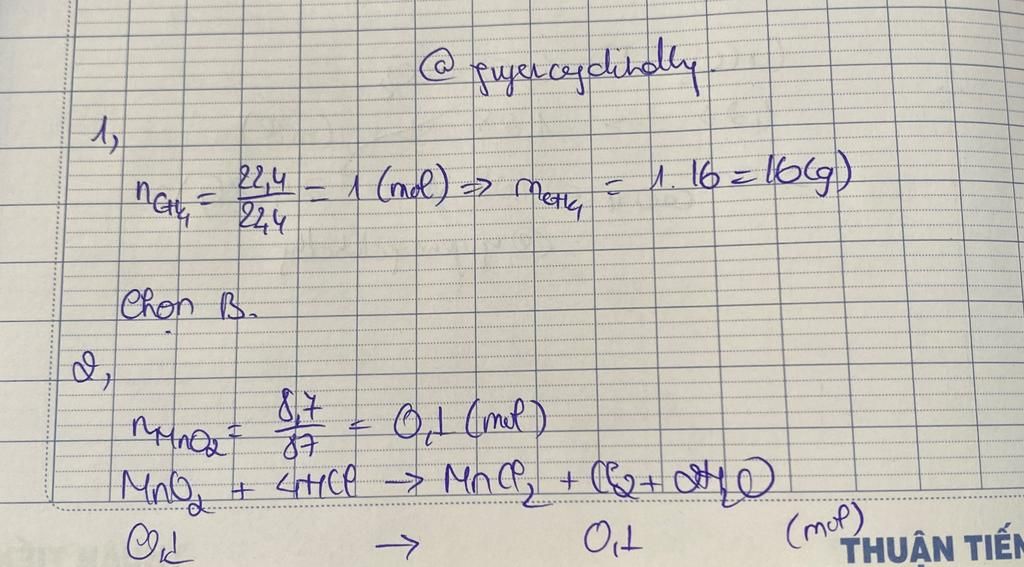 1,
nCH₄ = 22,4/22,4 = 1 (mol) => mCH₄ = 1.16 = 16(g)
Chọn B.
2,
nMnO₂ = 8,7/87 = 0,1 (mol)
MnO₂ + 4HCl → MnCl₂ + Cl₂ + 2H₂O
0,1 → 0,1 (mol)
THUẬN TIẾN